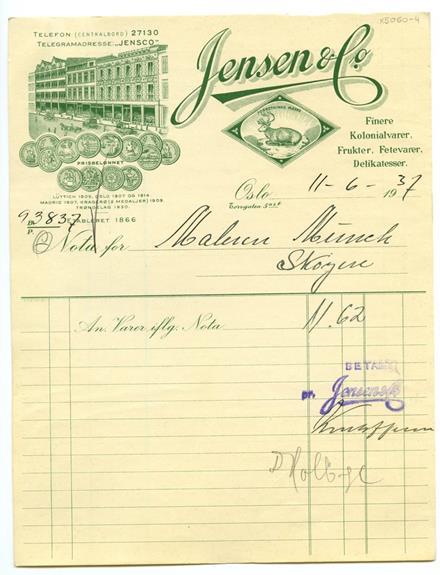 K5060-4
TELEFON (CENTRALBORD) 27130
TELEGRAMADRESSE: „JENSCO"
Jensen & Co.
REGISTRERT MERKE
PRISBELØNNET
LÜTTICH 1905, OSLO 1907 OG 1914
MADRID 1907, KRAGERØ (2 MEDALJER) 1909.
TRØNDELAG 1930.
ETABLERET 1866
Finere
Kolonialvarer.
Frukter. Fetevarer.
Delikatesser.
Oslo 11-6-1937
Torvgaten 5
93837
Nota for Maleren Munch
Skøyen
An. Varer iflg. Nota 11.62
BETALT
pr. Jensen & Co